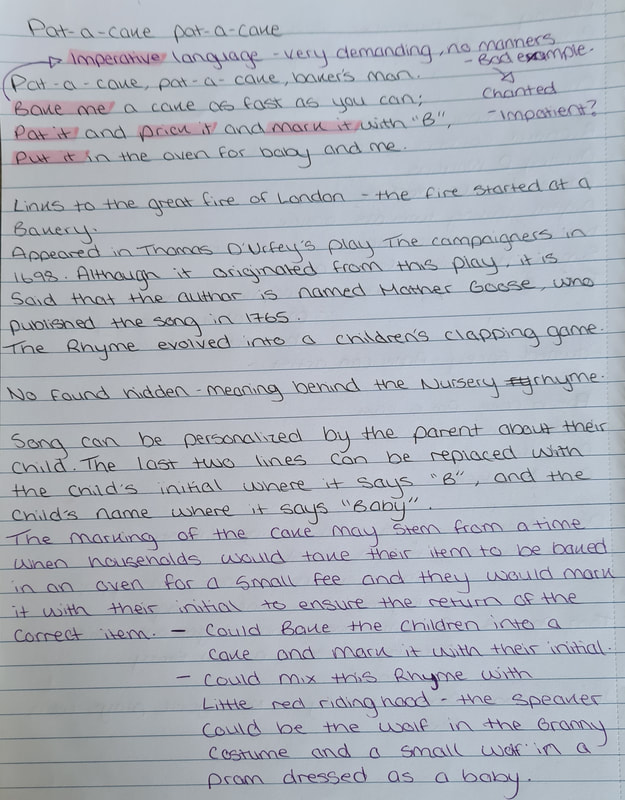 Pat-a-cake pat-a-cake
Imperative language - very demanding, no manners
- Bad example.
Pat-a-cake, pat-a-cake, baker's man.
Chanted
Bake me a cake as fast as you can;
- Impatient?
Pat it and prick it and mark it with "B",
Put it in the oven for baby and me.
Links to the great fire of London - the fire started at a
Bakery.
Appeared in Thomas D'Urfey's play The campaigners in
1698. Although it originated from this play, it is
Said that the author is named Mother Goose, who
published the song in 1765.
The Rhyme evolved into a children's clapping game.
No found hidden-meaning behind the Nursery rhyme.
Song can be personalized by the parent about their
child. The last two lines can be replaced with
the child's initial where it says "B", and the
child's name where it says "Baby".
The marking of the cake may stem from a time
when households would take their item to be baked
in an oven for a small fee and they would mark
it with their initial to ensure the return of the
correct item. - Could Bake the children into a
cake and mark it with their initial.
- Could mix this Rhyme with
Little red riding hood - the speaker
could be the wolf in the Granny
costume and a small in a
pram dressed as a baby.